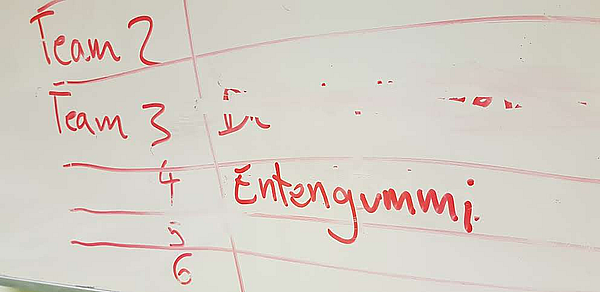 Team 2
Team 3
4 Entengummi
5
6